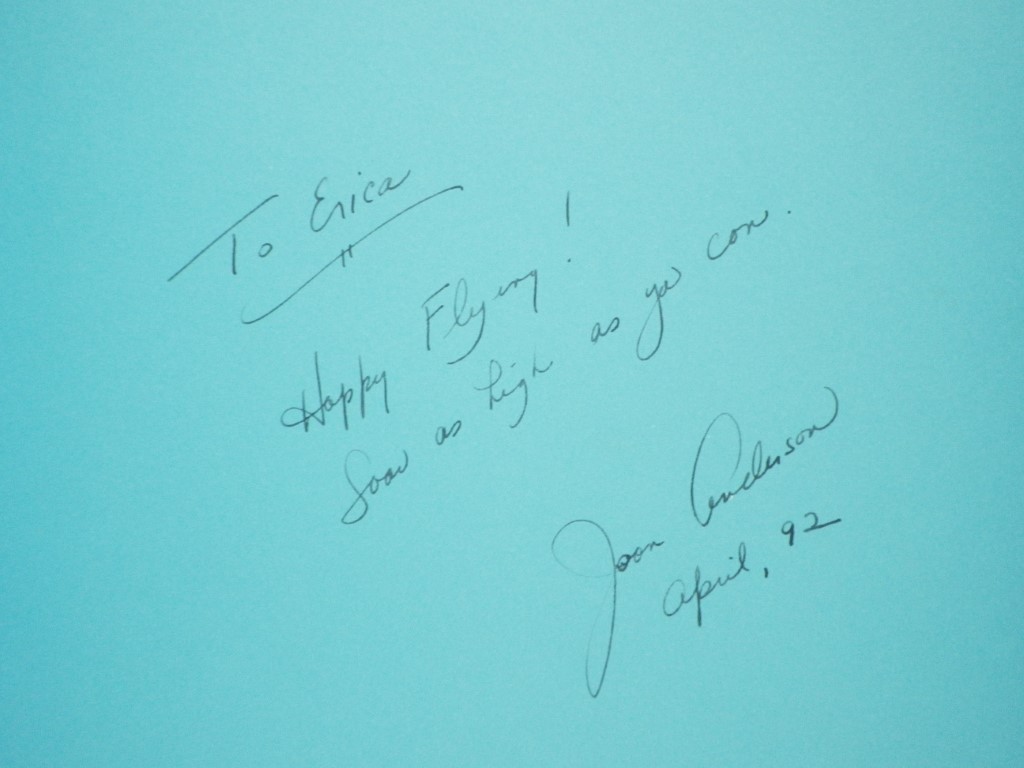 To Erica
Happy Flying!
Soar as high as you can.
Joan Anderson
April, 92